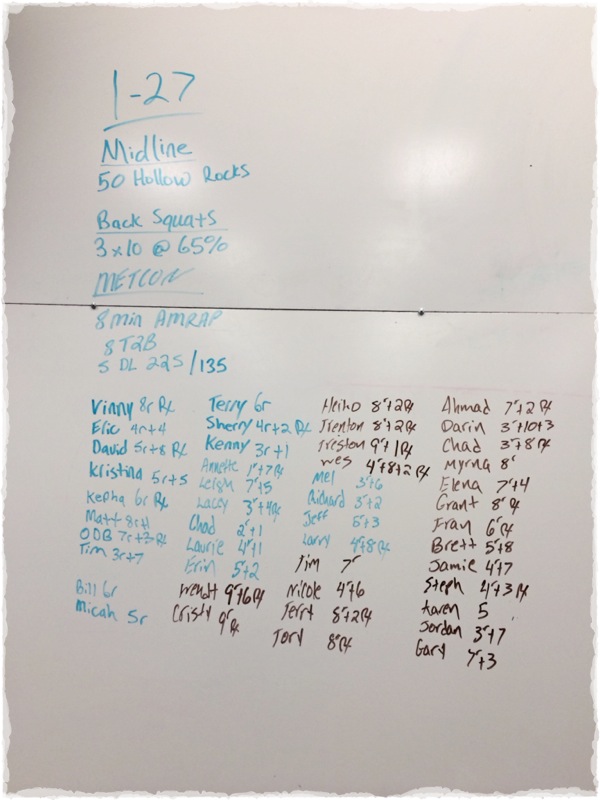 1-27
Midline
50 Hollow Rocks
Back Squats
3 x 10 @ 65%
METCON
8 min AMRAP
8 T2B
5 DL 225/135
Vinny 8r Rx
Eric 4r+4
David 5r+8 Rx
Kristina 5r+5
Kepha 6r Rx
Matt 8r+1
ODB 7r+3 Rx
Tim 3r+7
Bill 6r
Micah 5r
Terry 6r
Sherry 4r+2 Rx
Kenny 3r+1
Annette 1r+7 Rx
Leigh 7r+5
Lacey 3r+4 Rx
Chad 2r+1
Laurie 4r+1
Erin 5r+2
Wendt 9r+6 Rx
Cristy 9r Rx
Heiko 8r+2 Rx
Trenton 8r+2 Rx
Treston 9r+1 Rx
Wes 4r+8+2 Rx
Mel 3r+6
Richard 3r+2
Jeff 5+3
Larry 4r+8 Rx
Tim 7r
Nicole 4r+6
Terry 8r+2 Rx
Tory 8r Rx
Ahmad 7r+2 Rx
Darin 3r+10+3
Chad 3r+8r Rx
Myrna 8r
Elena 7r+4
Grant 8r Rx
Fran 6r Rx
Brett 5r+8
Jamie 4r+7
Steph 4r+3 Rx
Karen 5
Jordan 3r+7
Gary